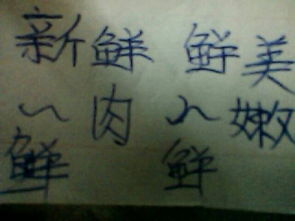 新鲜 鲜美
~肉 ~嫩
鲜 鲜